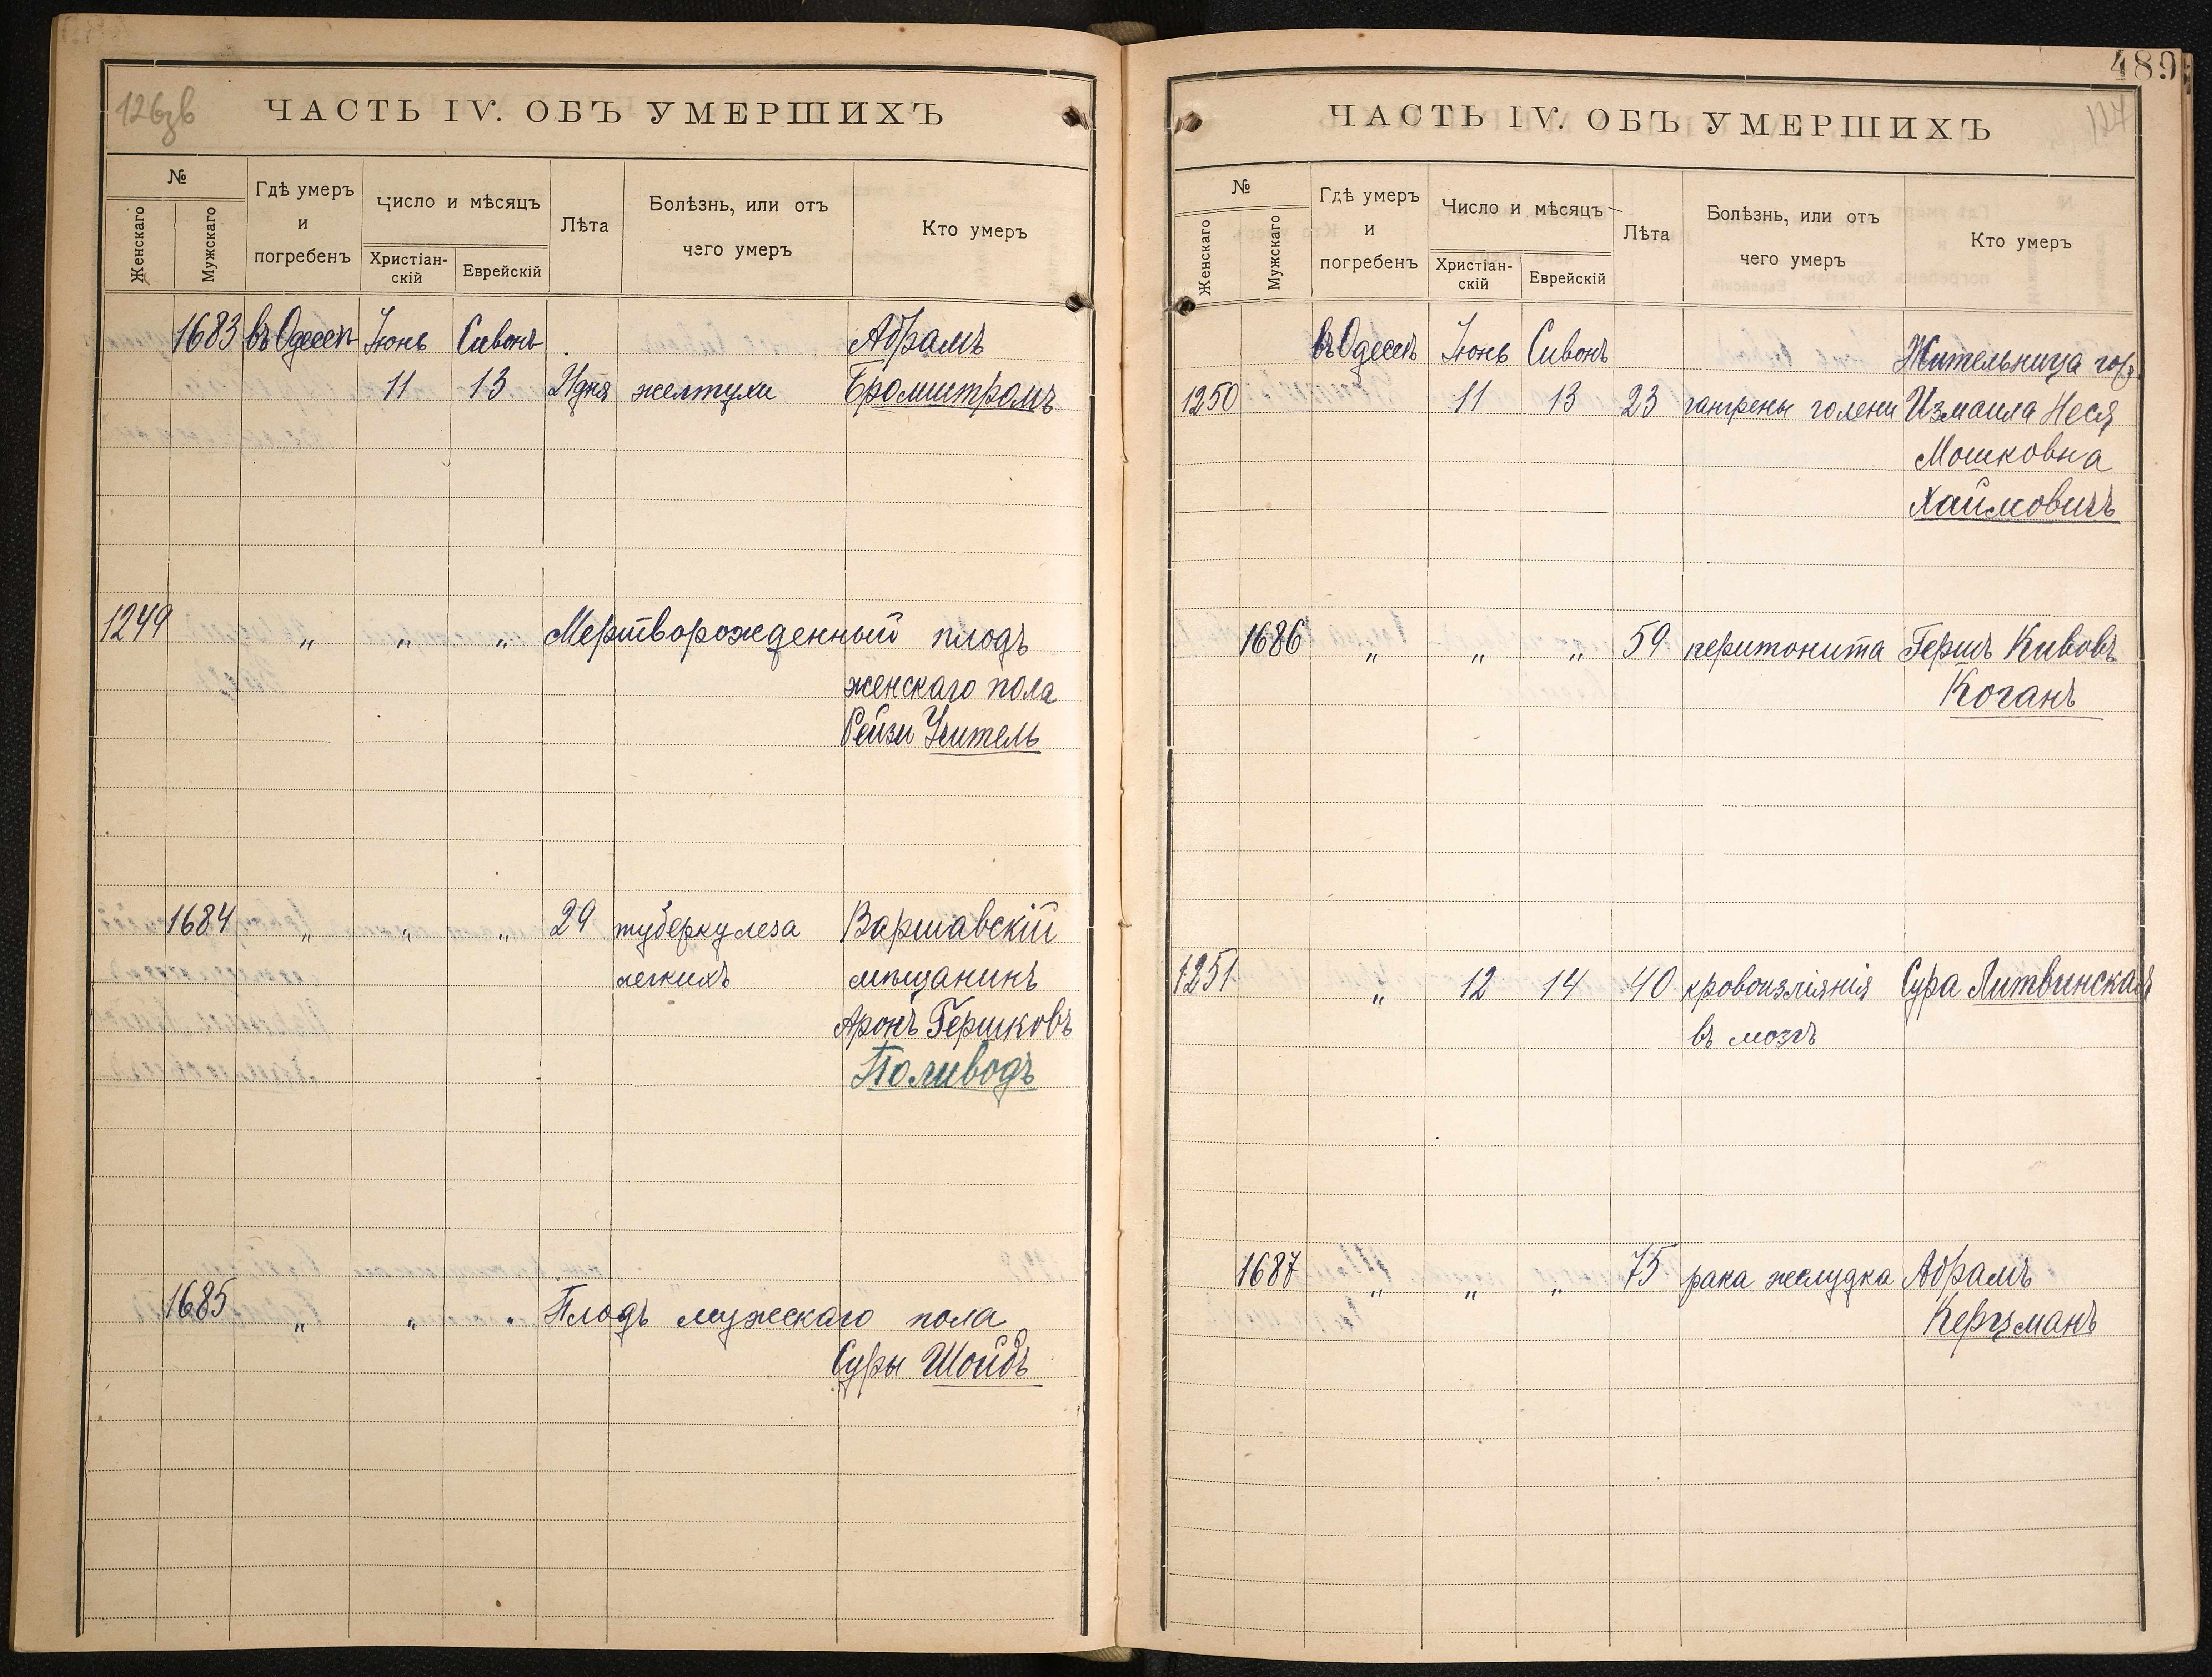 126зв
ЧАСТЬ IV. ОБЪ УМЕРШИХЪ
№
Женскаго
Мужскаго
Гдѣ умеръ
и
погребенъ
Число и мѣсяцъ
Христіан-
скій
Еврейскій
Лѣта
Болѣзнь, или отъ
чего умеръ
Кто умеръ
1683 въ Одессѣ Іюнь Сивонъ Абрамъ
11 13 21 дня желтухи Бромштромъ
1249 " " " Мертворожденный плодъ
женскаго пола
Рейзи Учитель
1684 " " " 29 туберкулеза Варшавскій
легкихъ мѣщанинъ
Аронъ Гершковъ
Поливодъ
1685 " " " Плодъ мужескаго пола
Суры Шойбъ
489
127
ЧАСТЬ IV. ОБЪ УМЕРШИХЪ
№
Женскаго
Мужскаго
Гдѣ умеръ
и
погребенъ
Число и мѣсяцъ
Христіан-
скій
Еврейскій
Лѣта
Болѣзнь, или отъ
чего умеръ
Кто умеръ
въ Одессѣ Іюнь Сивонъ Жительница гор.
1250 11 13 23 гангрены голени Измаила Неся
Мошковна
Хаймовичъ
1686 " " " 59 перитонита Гершъ Кивовъ
Коганъ
1251 " 12 14 40 кровоизліянія Сура Литвинская
въ мозгъ
1687 " " " 75 рака желудка Абрамъ
Керцманъ